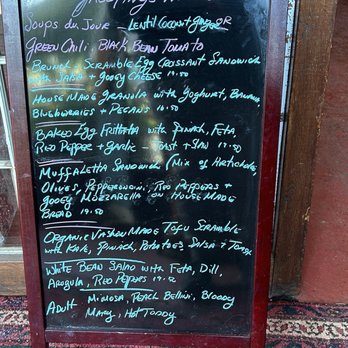 Soups du Jour - Lentil Coconut Ginger OR
Green Chili, Black Bean Tomato
Brunch - Scramble Egg Croissant Sandwich
with Salsa + gooey Cheese 19.50
House Made Granola with Yoghurt, Banana,
Blueberries + Pecans 16.50
Baked Egg Frittata with Spinach, Feta,
Red Pepper + garlic - Toast + Jam 17.50
Muffaletta Sandwich (Mix of Artichoke,
Olives, Pepperoncini, Red Peppers +
gooey Mozzarella on House Made
Bread 19.50
Organic Vashon Made Tofu Scramble
with Kale, Spinach, Potatoes Salsa + Toast
White Bean Salad with Feta, Dill,
Arugula, Red Peppers
Adult Mimosa, Peach Bellini, Bloody
Mary, Hot Toddy